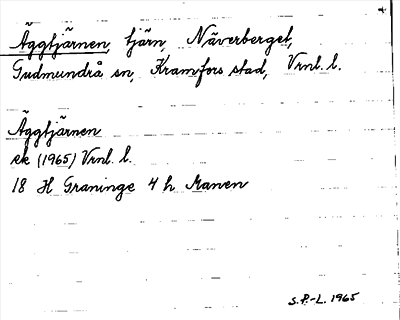 Äggtjärnen, tjärn, Näverberget,
Gudmundrå sn, Kramfors stad, Vrnl. l.
Äggtjärnen
ek (1965) Vrnl. l.
18 H Graninge 4 h Manen
S.P.-L. 1965